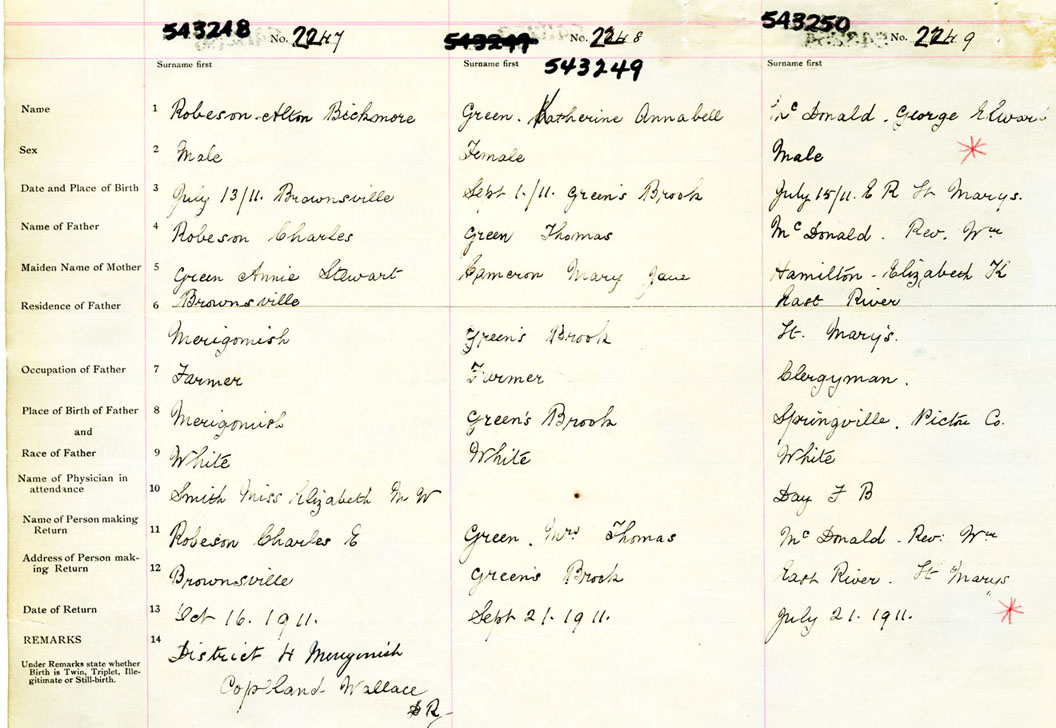 543248 No. 2247 543249 No. 2248 543250 No. 2249
543249
Surname first Surname first Surname first
Name 1 Robeson Alton Bickmore Green. Katherine Annabell Mc Donald. George Edward
Sex 2 Male Female Male
Date and Place of Birth 3 July 13/11. Brownsville Sept 1./11. Green's Brook July 15/11. E R St Marys.
Name of Father 4 Robeson Charles Green Thomas Mc Donald. Rev. Wm
Maiden Name of Mother 5 Green Annie Stewart Cameron Mary Jane Hamilton - Elizabeth K
Residence of Father 6 Brownsville East River
Merigomish Green's Brook St. Mary's.
Occupation of Father 7 Farmer Farmer Clergyman.
Place of Birth of Father 8 Merigomish Green's Brook Springville, Pictou Co.
and
Race of Father 9 White White White
Name of Physician in
attendance 10 Smith Miss Elizabeth M W Day F B
Name of Person making
Return 11 Robeson Charles E Green. Mrs Thomas Mc Donald - Rev: Wm
Address of Person mak-
ing Return 12 Brownsville Green's Brook East River. St Marys
Date of Return 13 Oct 16. 1911. Sept 21. 1911. July 21. 1911.
REMARKS 14 District 4 Merigomish
Under Remarks state whether
Birth is Twin, Triplet, Ille-
gitimate or Still-birth.
Copeland Wallace
D R